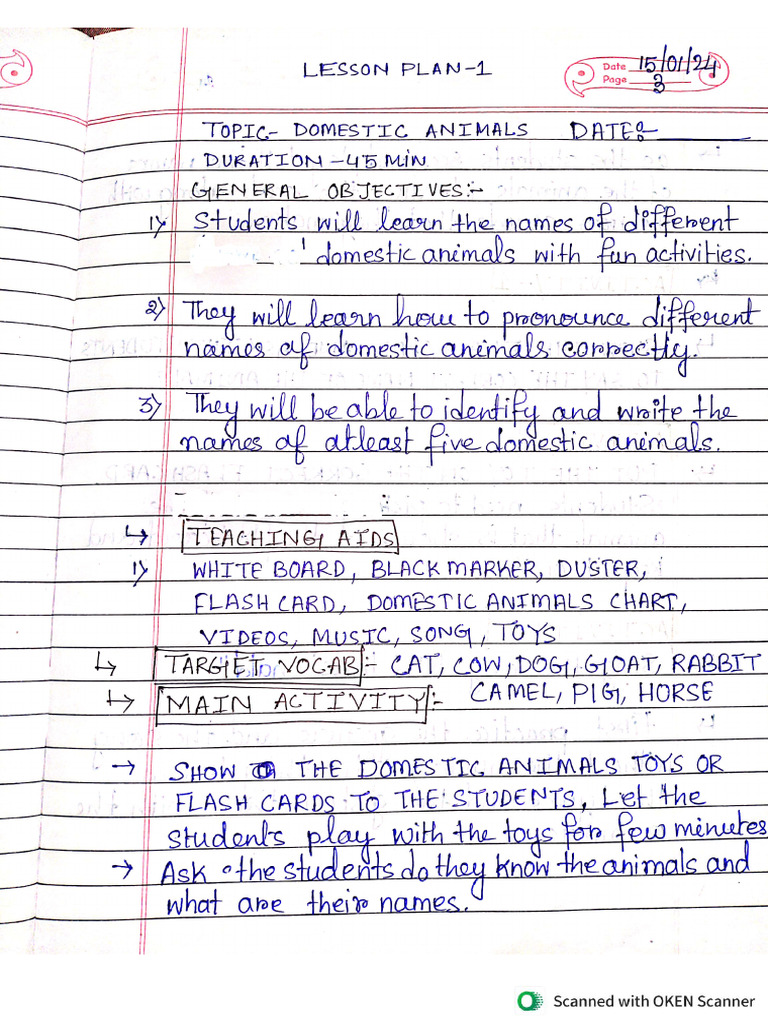 LESSON PLAN-1
Date 15/01/24
Page 3
TOPIC- DOMESTIC ANIMALS DATE:- ________
DURATION -45 MIN
GENERAL OBJECTIVES:-
1) Students will learn the names of different
domestic animals with fun activities.
2) They will learn how to pronounce different
names of domestic animals correctly.
3) They will be able to identify and write the
names of atleast five domestic animals.
↳ TEACHING AIDS
1) WHITE BOARD, BLACK MARKER, DUSTER,
FLASH CARD, DOMESTIC ANIMALS CHART,
VIDEOS, MUSIC, SONG, TOYS
↳ TARGET VOCAB:- CAT, COW, DOG, GOAT, RABBIT
CAMEL, PIG, HORSE
↳ MAIN ACTIVITY:-
→ SHOW THE DOMESTIC ANIMALS TOYS OR
FLASH CARDS TO THE STUDENTS, Let the
students play with the toys for few minutes
→ Ask the students do they know the animals and
what are their names.
Scanned with OKEN Scanner